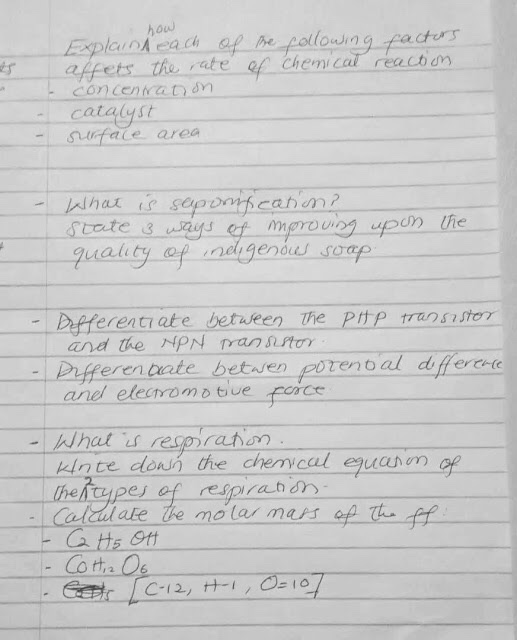 how
Explain each of the following factors
affets the rate of chemical reaction
- concentration
- catalyst
- surface area
- What is saponification?
State 3 ways of improving upon the
quality of indigenous soap.
- Differentiate between the PHP transistor
and the NPN transistor.
- Differentiate between potential difference
and electromotive force
- What is respiration.
Write down the chemical equation of
the 2 types of respiration.
- Calculate the molar mass of the ff:
- C2 H5 OH
- C6 H12 O6
- [C-12, H-1, O=16]